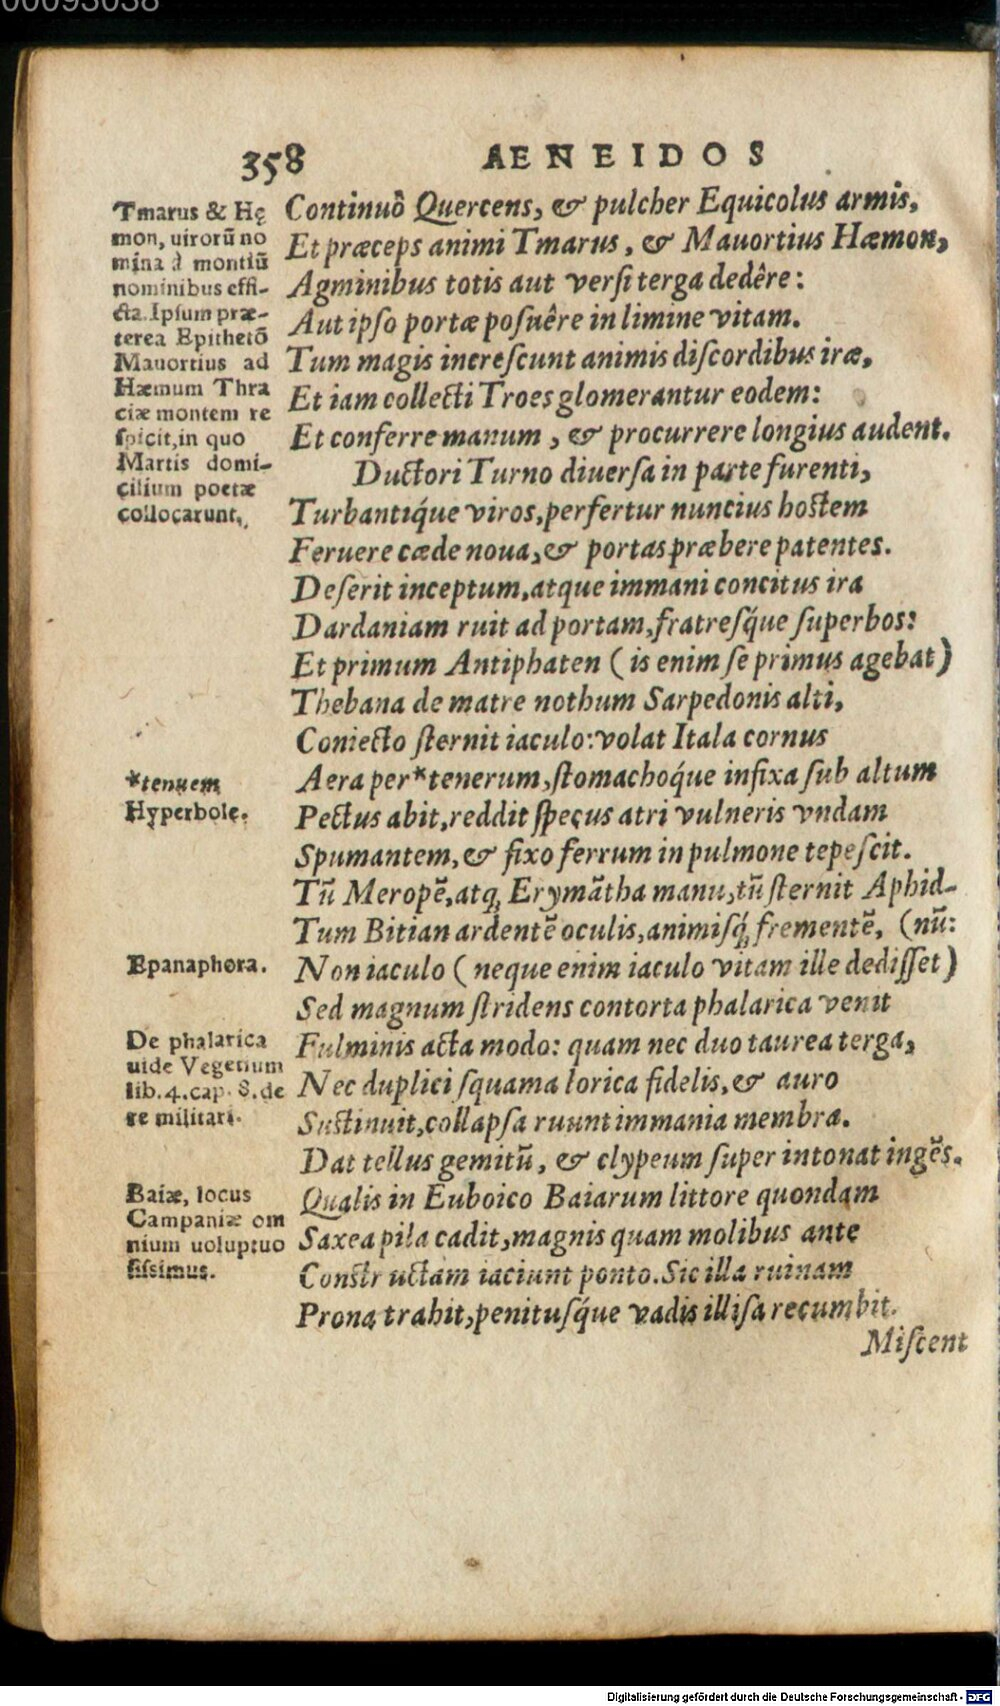 00093038
358 AENEIDOS
Continuò Quercens, & pulcher Equicolus armis,
Et præceps animi Tmarus, & Mauortius Hæmon,
Agminibus totis aut versi terga dedêre:
Aut ipso portæ posuêre in limine vitam.
Tum magis increscunt animis discordibus iræ,
Et iam collecti Troes glomerantur eodem:
Et conferre manum, & procurrere longius audent.
Ductori Turno diuersa in parte furenti,
Turbantiq́ue viros, perfertur nuncius hostem
Feruere cæde noua, & portas præbere patentes.
Deserit inceptum, atque immani concitus ira
Dardaniam ruit ad portam, fratresq́ue superbos:
Et primum Antiphaten (is enim se primus agebat)
Thebana de matre nothum Sarpedonis alti,
Coniecto sternit iaculo: volat Itala cornus
Aera per *tenerum, stomachoq́ue infixa sub altum
Pectus abit, reddit specus atri vulneris vndam
Spumantem, & fixo ferrum in pulmone tepescit.
Tū Meropē, atq; Erymātha manu, tū sternit Aphid-
Tum Bitian ardentē oculis, animisq́; frementē, (nū:
Non iaculo (neque enim iaculo vitam ille dedisset)
Sed magnum stridens contorta phalarica venit
Fulminis acta modo: quam nec duo taurea terga,
Nec duplici squama lorica fidelis, & auro
Sustinuit, collapsa ruunt immania membra.
Dat tellus gemitū, & clypeum super intonat ingēs.
Qualis in Euboico Baiarum littore quondam
Saxea pila cadit, magnis quam molibus ante
Constructam iaciunt ponto. Sic illa ruinam
Prona trahit, penitusq́ue vadis illisa recumbit.
Miscent
Tmarus & Hę
mon, uirorū no
mina à montiū
nominibus effi-
cta. Ipsum præ-
terea Epithetō
Mauortius ad
Hæmum Thra
ciæ montem re
spicit, in quo
Martis domi-
cilium poetæ
collocarunt.
*tenuem
Hyperbole.
Epanaphora.
De phalarica
uide Vegetium
lib. 4. cap. 8. de
re militari.
Baiæ, locus
Campaniæ om
nium uoluptuo
sissimus.
Digitalisierung gefördert durch die Deutsche Forschungsgemeinschaft - DFG